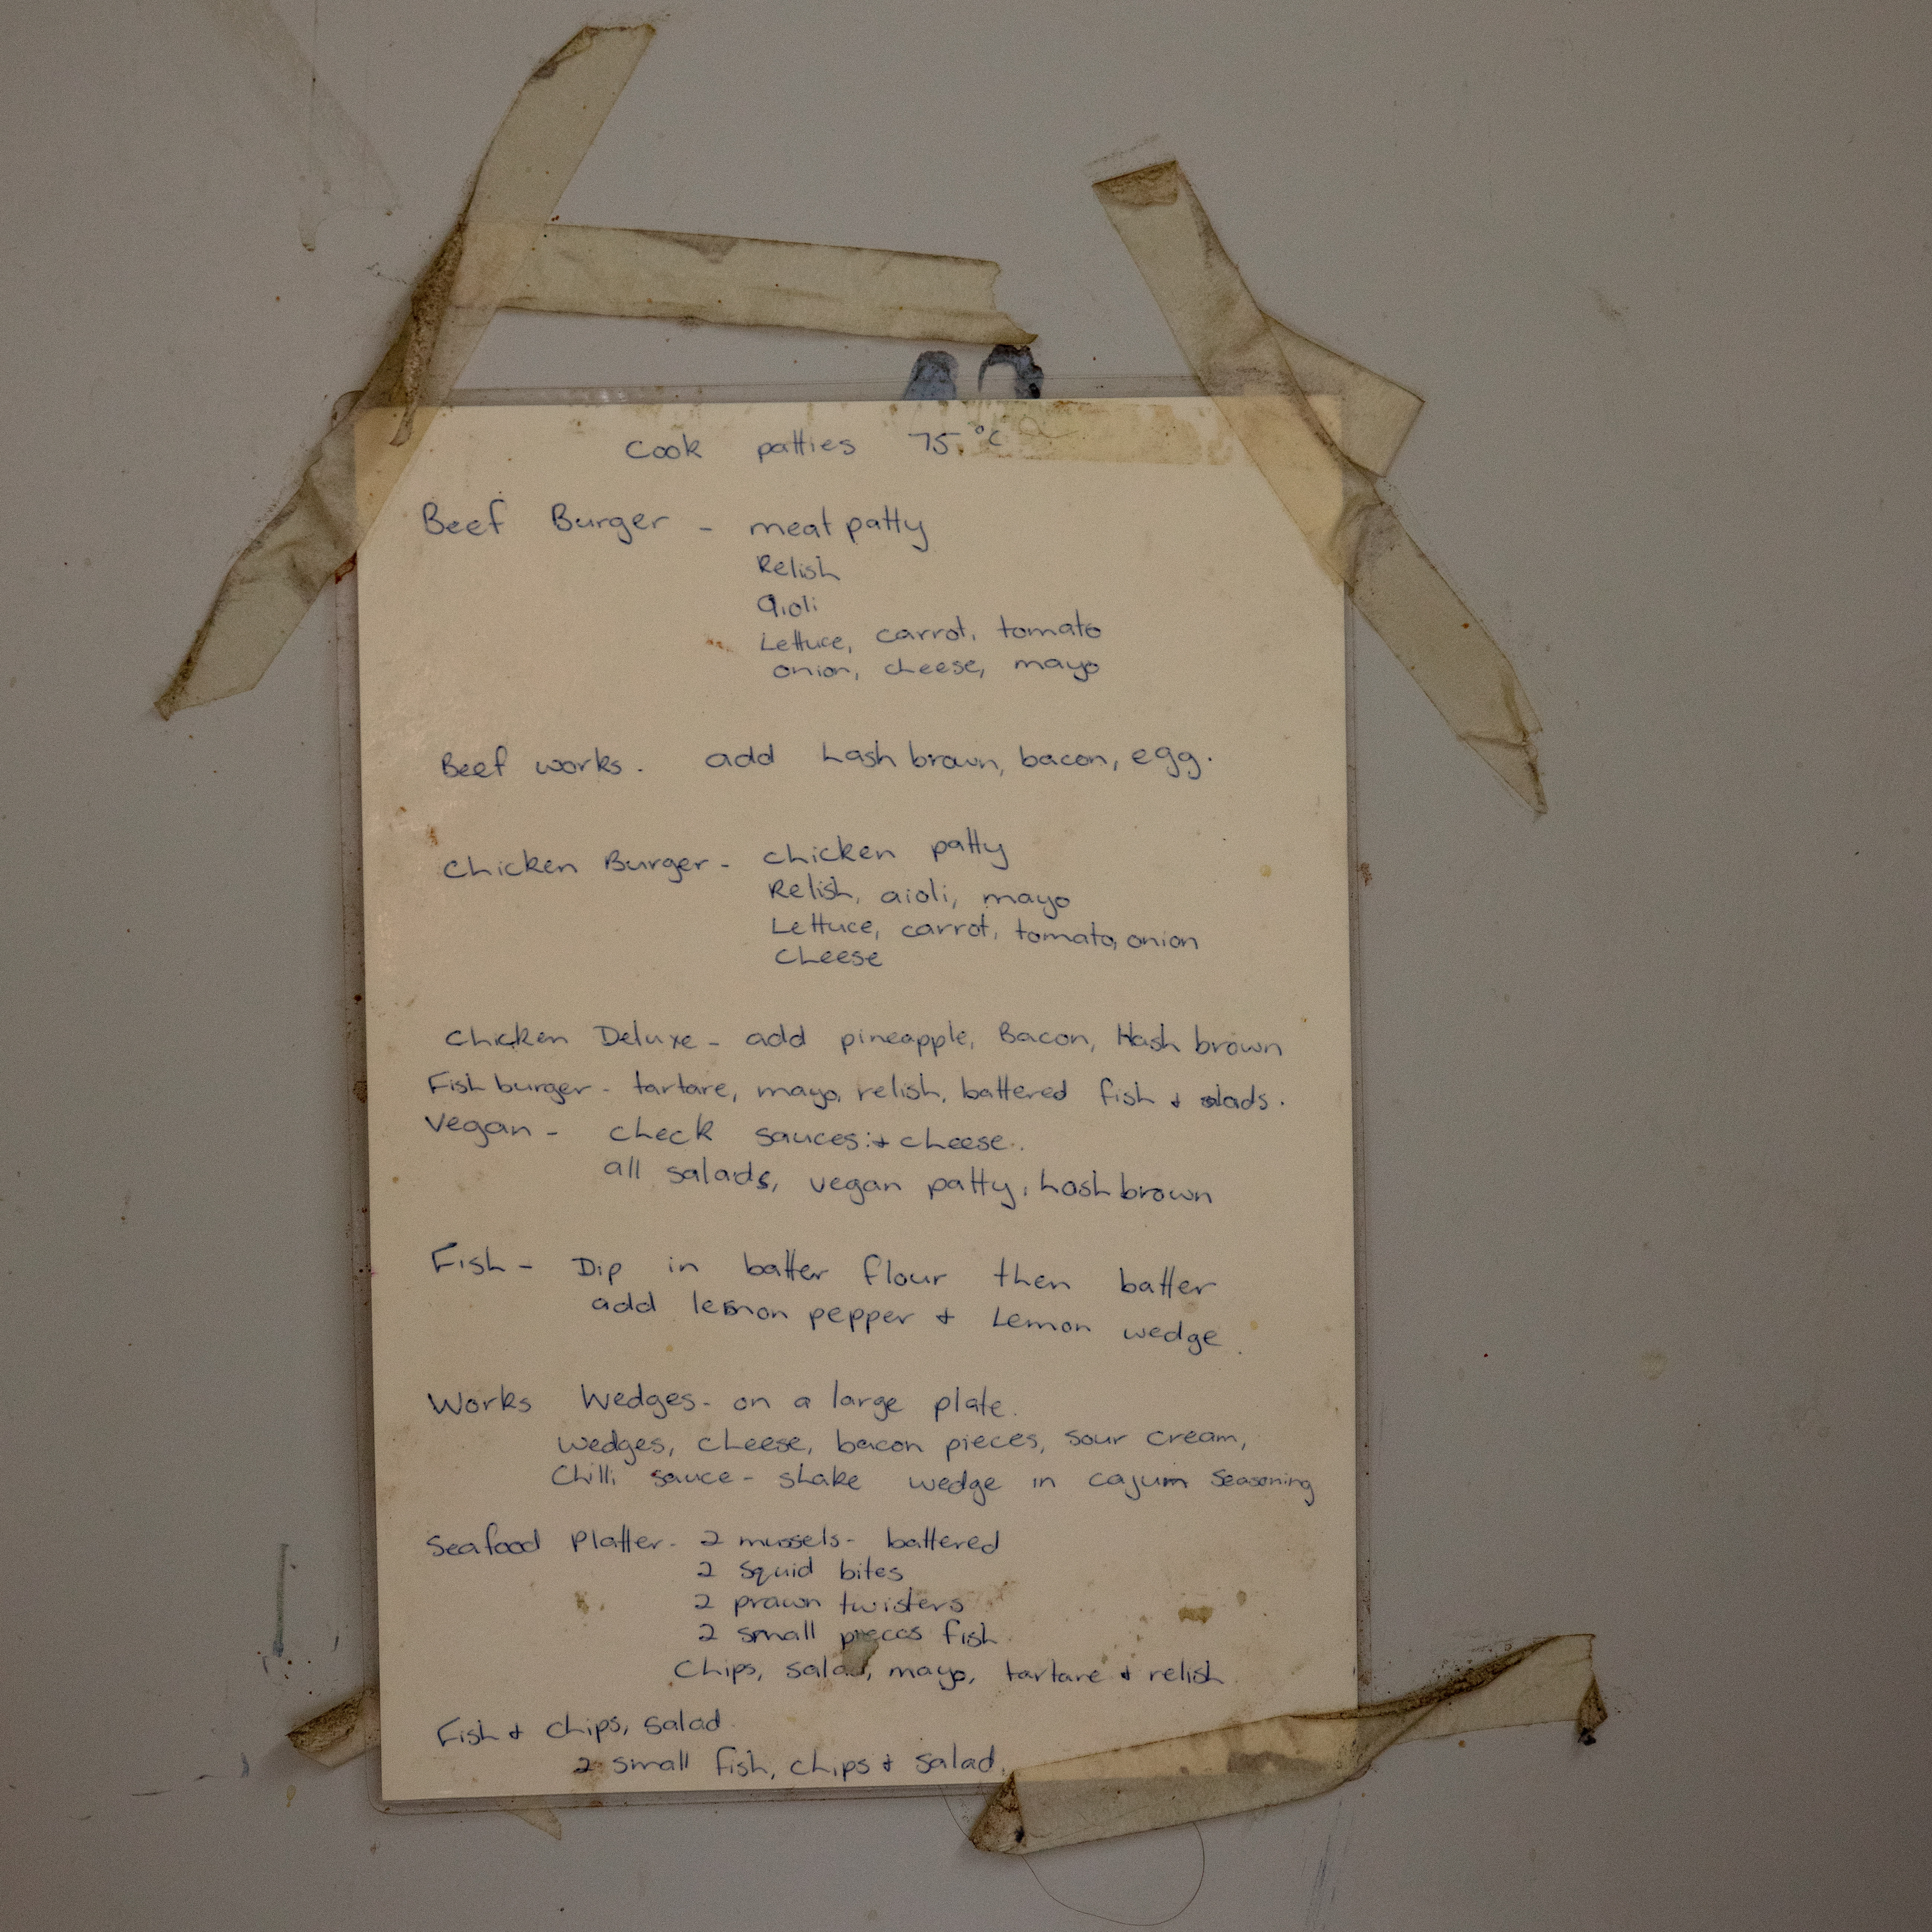 Cook patties 75°C
Beef Burger - meat patty
Relish
aioli
Lettuce, carrot, tomato
onion, cheese, mayo
Beef works. add hash brown, bacon, egg.
Chicken Burger - chicken patty
Relish, aioli, mayo
Lettuce, carrot, tomato, onion
Cheese
Chicken Deluxe - add pineapple, Bacon, Hash brown
Fish burger - tartare, mayo, relish, battered fish + salads.
Vegan - check sauces + cheese.
all salads, vegan patty, hash brown
Fish - Dip in batter flour then batter
add lemon pepper + Lemon wedge.
Works Wedges - on a large plate.
wedges, cheese, bacon pieces, sour cream,
Chilli sauce - shake wedge in cajum Seasoning
Seafood Platter - 2 mussels - battered
2 squid bites
2 prawn twisters
2 small pieces fish
Chips, salad, mayo, tartare + relish
Fish + chips, salad.
2 small fish, chips + salad.